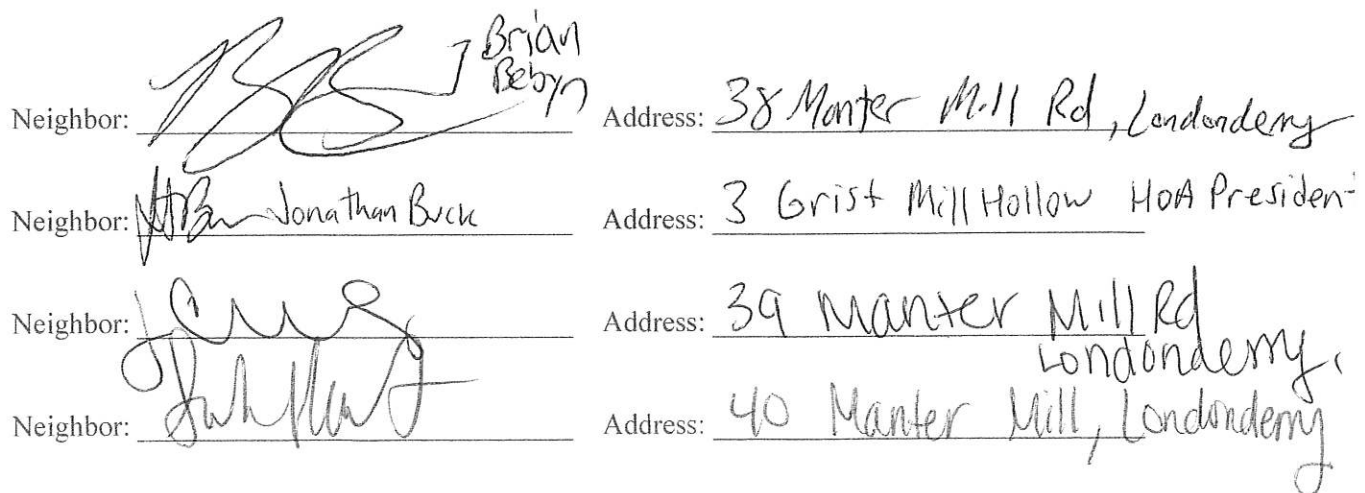 Neighbor: Brian Bebyn Address: 38 Manter Mill Rd, Londonderry
Neighbor: Jonathan Buck Address: 3 Grist Mill Hollow HOA President
Neighbor: Address: 39 Manter Mill Rd
Londonderry,
Neighbor: Address: 40 Manter Mill, Londonderry